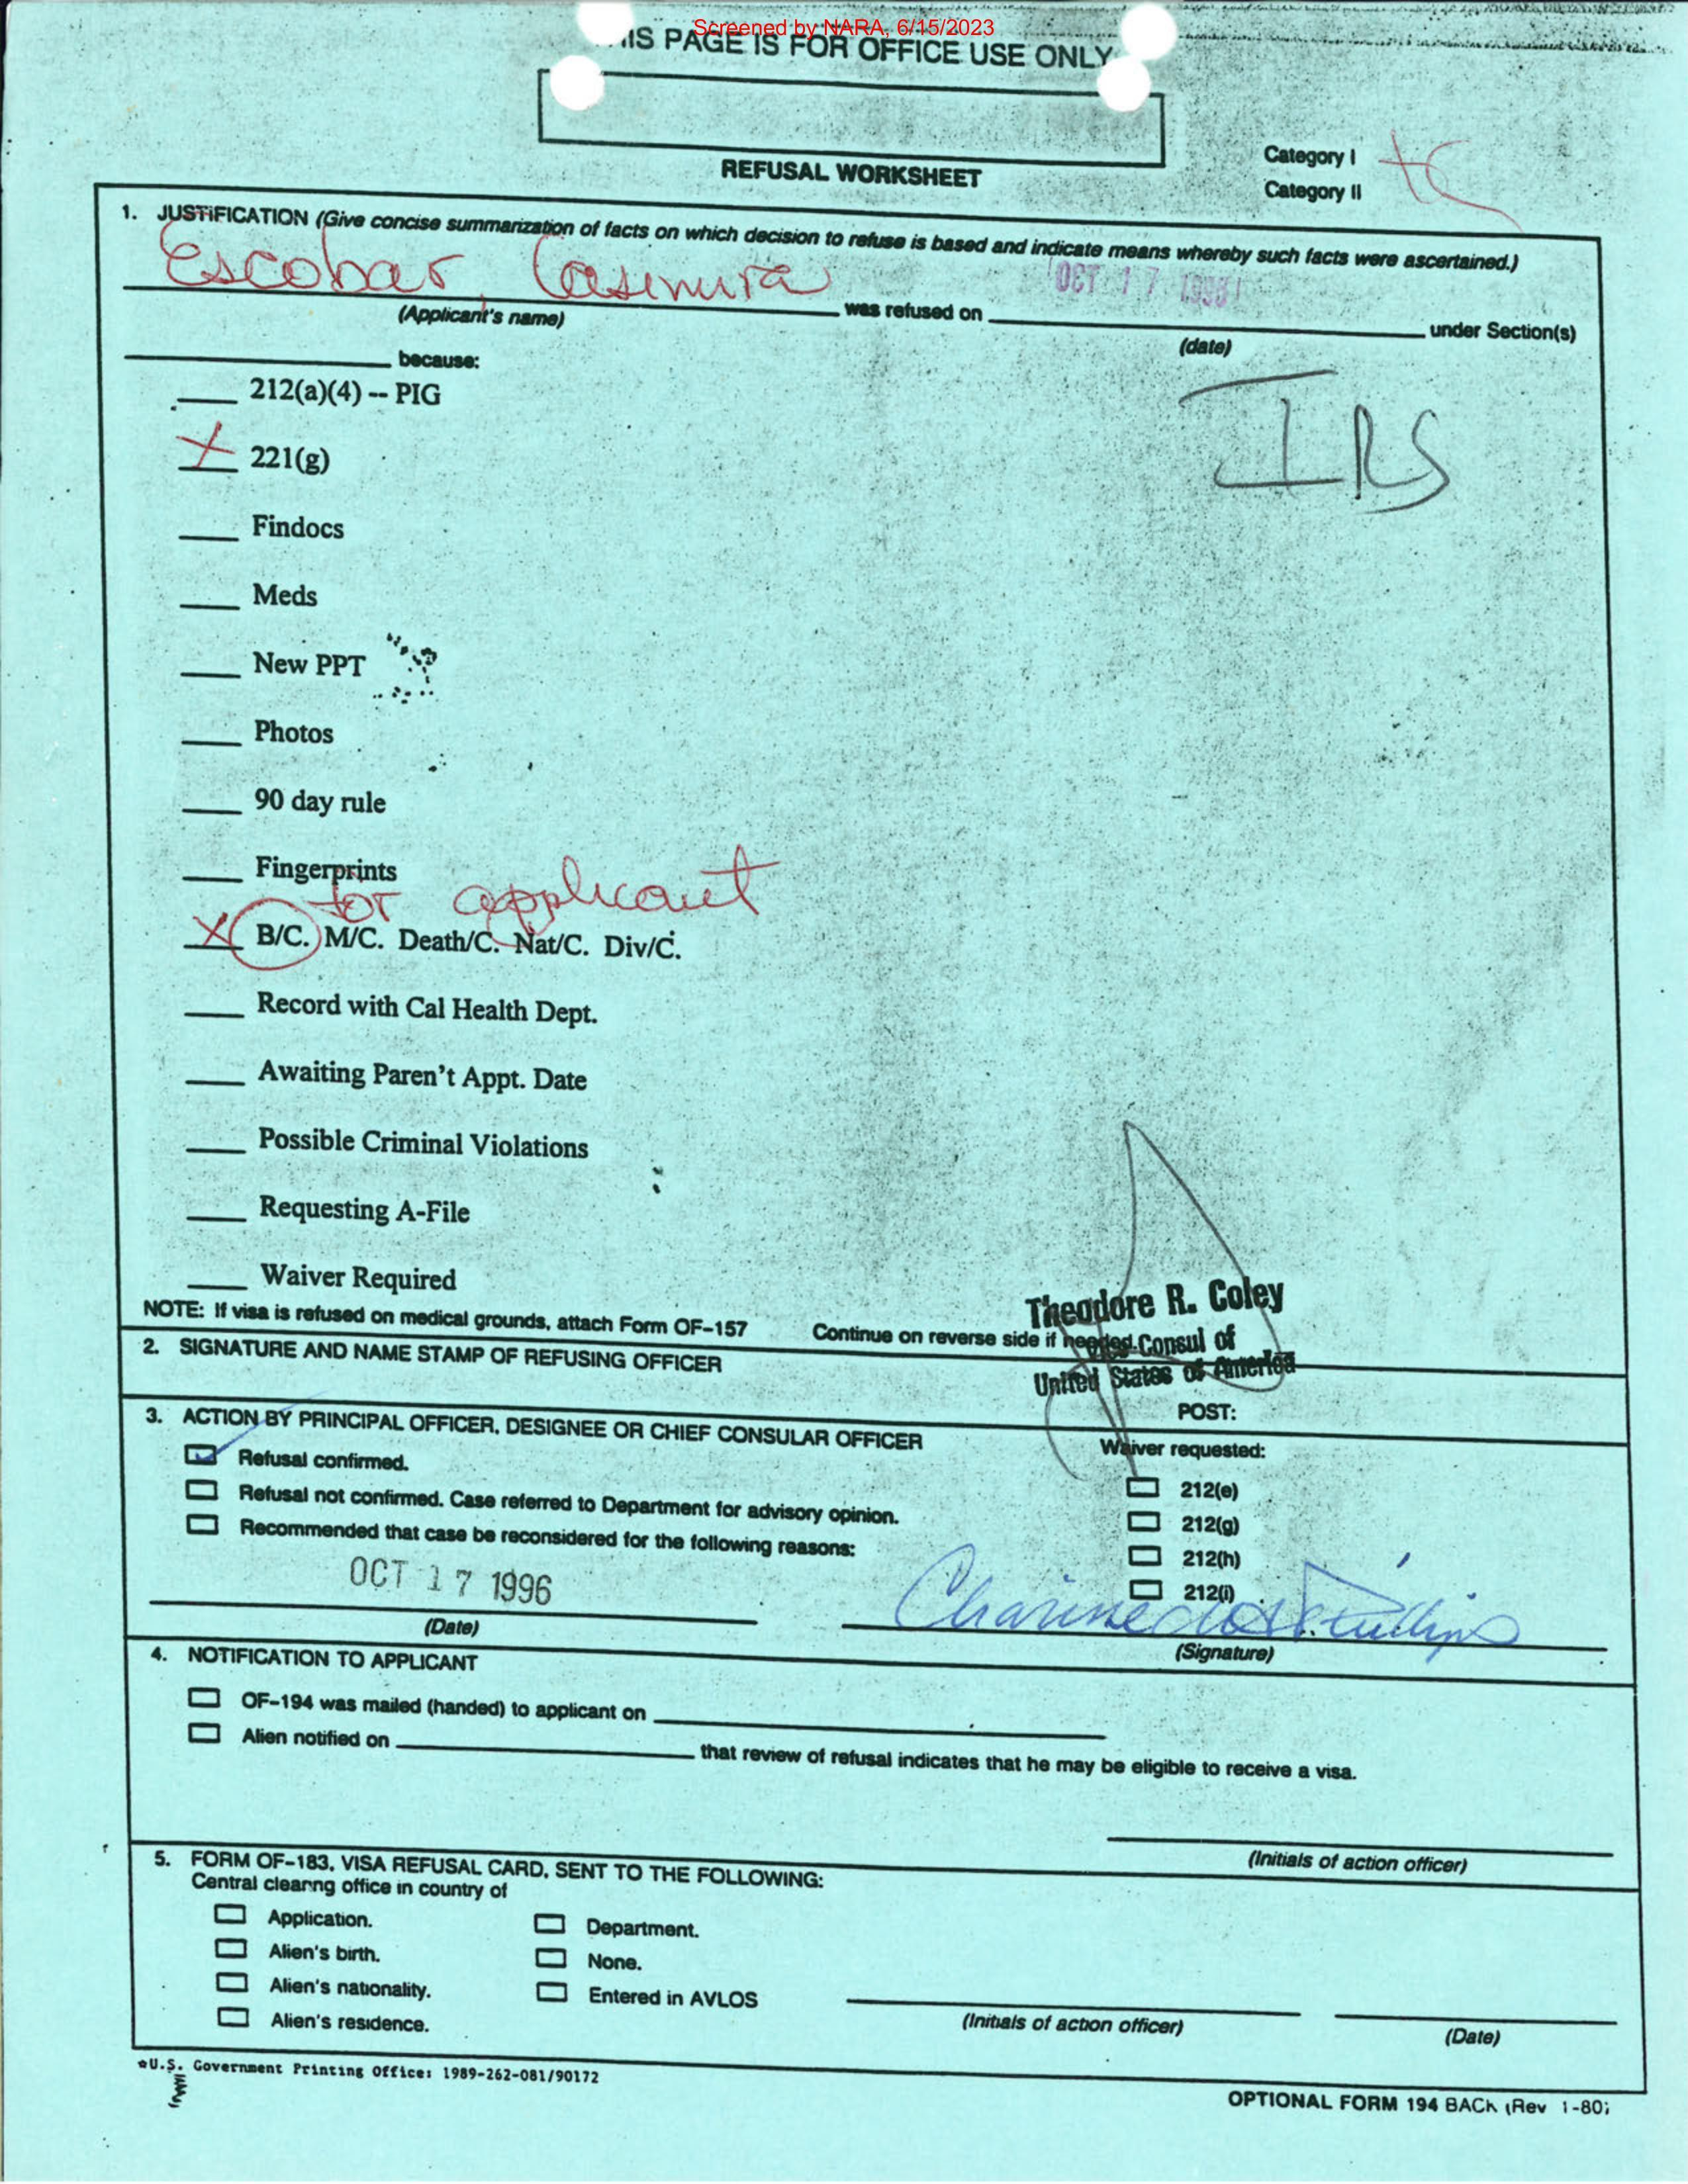 Screened by NARA, 6/15/2023
IS PAGE IS FOR OFFICE USE ONLY
REFUSAL WORKSHEET
Category I
Category II
1. JUSTIFICATION (Give concise summarization of facts on which decision to refuse is based and indicate means whereby such facts were ascertained.)
Escobar, Casimira was refused on OCT 17 1996 under Section(s)
(Applicant's name)
(date)
because:
212(a)(4) -- PIG
IRS
X 221(g)
Findocs
Meds
New PPT
Photos
90 day rule
Fingerprints
for applicant
X B/C. M/C. Death/C. Nat/C. Div/C.
Record with Cal Health Dept.
Awaiting Paren't Appt. Date
Possible Criminal Violations
Requesting A-File
Waiver Required
Theodore R. Coley
NOTE: If visa is refused on medical grounds, attach Form OF-157 Continue on reverse side if needed
Consul of
2. SIGNATURE AND NAME STAMP OF REFUSING OFFICER
United States of America
POST:
3. ACTION BY PRINCIPAL OFFICER, DESIGNEE OR CHIEF CONSULAR OFFICER
Waiver requested:
Refusal confirmed.
212(e)
Refusal not confirmed. Case referred to Department for advisory opinion.
212(g)
Recommended that case be reconsidered for the following reasons:
212(h)
212(i)
OCT 17 1996
(Date)
(Signature)
4. NOTIFICATION TO APPLICANT
OF-194 was mailed (handed) to applicant on
Alien notified on that review of refusal indicates that he may be eligible to receive a visa.
(Initials of action officer)
5. FORM OF-183, VISA REFUSAL CARD, SENT TO THE FOLLOWING:
Central clearing office in country of
Application.
Department.
Alien's birth.
None.
Alien's nationality.
Entered in AVLOS
Alien's residence.
(Initials of action officer)
(Date)
☆U.S. Government Printing Office: 1989-262-081/90172
OPTIONAL FORM 194 BACK (Rev 1-80)